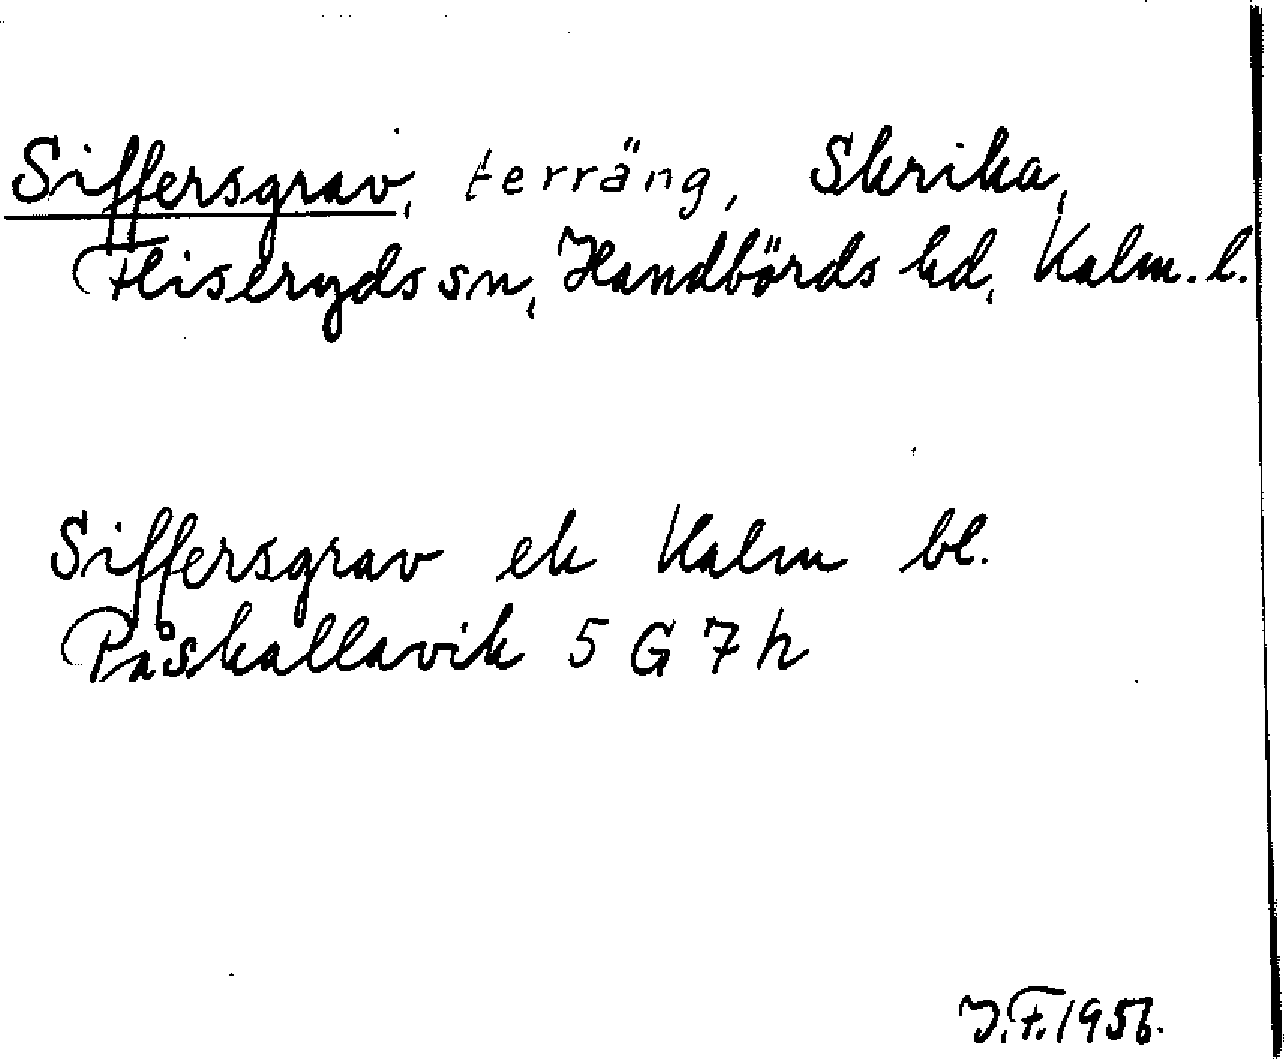 Siffersgrav, terräng, Skrika,
Fliseryds sn, Handbörds hd, Kalm. l.
Siffersgrav ek Kalm bl.
Påskallavik 5 G 7 h
J.F. 1956.